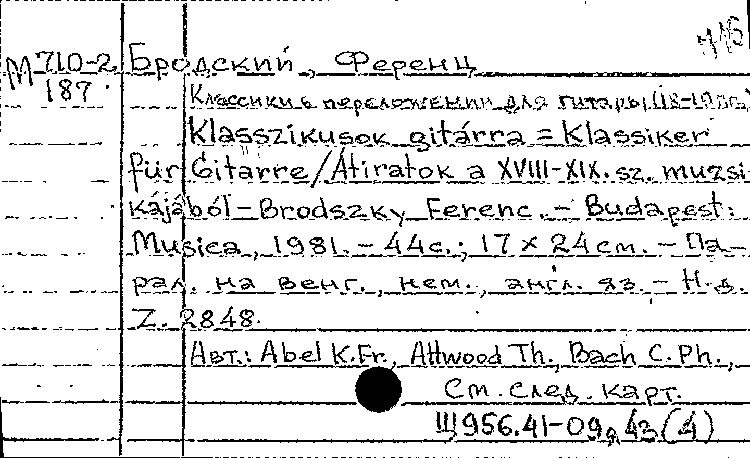 715
М 710-2 Бродский, Ференц
187
Классики в переложении для гитары (18-19 вв.)
Klasszikusok gitárra = Klassiker
für Gitarre/Átiratok a XVIII-XIX. sz. muzsi
kájából - Brodszky Ferenc. - Budapest:
Musica, 1981. - 44 с.; 17 x 24 см. - Па-
рал. на венг., нем., англ. яз. - Н.д.
Z. 2848.
Авт.: Abel K.Fr., Attwood Th., Bach C.Ph.,
См. след. карт.
Щ956.41-09я43(4)